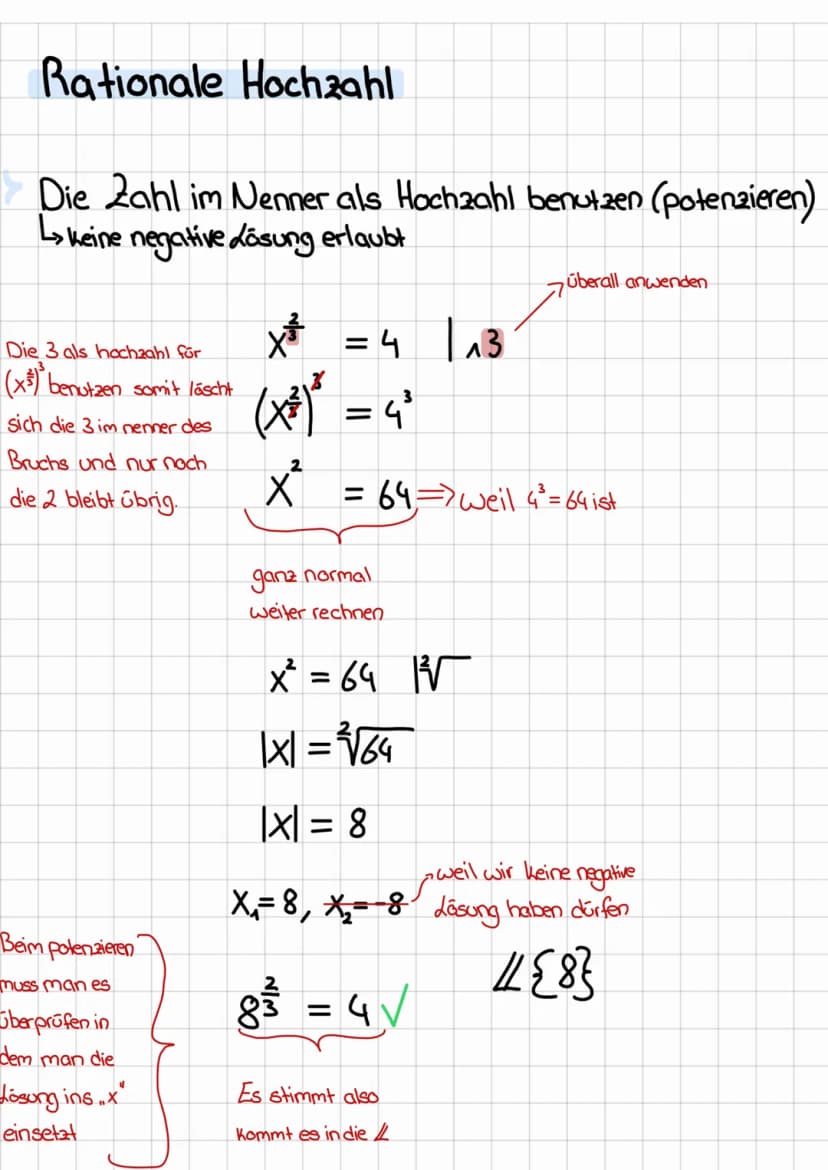 Rationale Hochzahl
Die Zahl im Nenner als Hochzahl benutzen (potenzieren)
↳ keine negative Lösung erlaubt
überall anwenden
x^(2/3) = 4 | ^3
Die 3 als hochzahl für
(x^(2/3))^3 benutzen somit löscht
sich die 3 im nenner des
Bruchs und nur noch
die 2 bleibt übrig.
(x^(2/3))^3 = 4^3
x² = 64 ⇒ weil 4³ = 64 ist
ganz normal
weiter rechnen
x² = 64 | ²√
|x| = ²√64
|x| = 8
weil wir keine negative
Lösung haben dürfen
x₁ = 8, x₂ = -8
𝕃{8}
8^(2/3) = 4 ✓
Beim potenzieren
muss man es
überprüfen in
dem man die
Lösung ins „x"
einsetzt
Es stimmt also
kommt es in die 𝕃